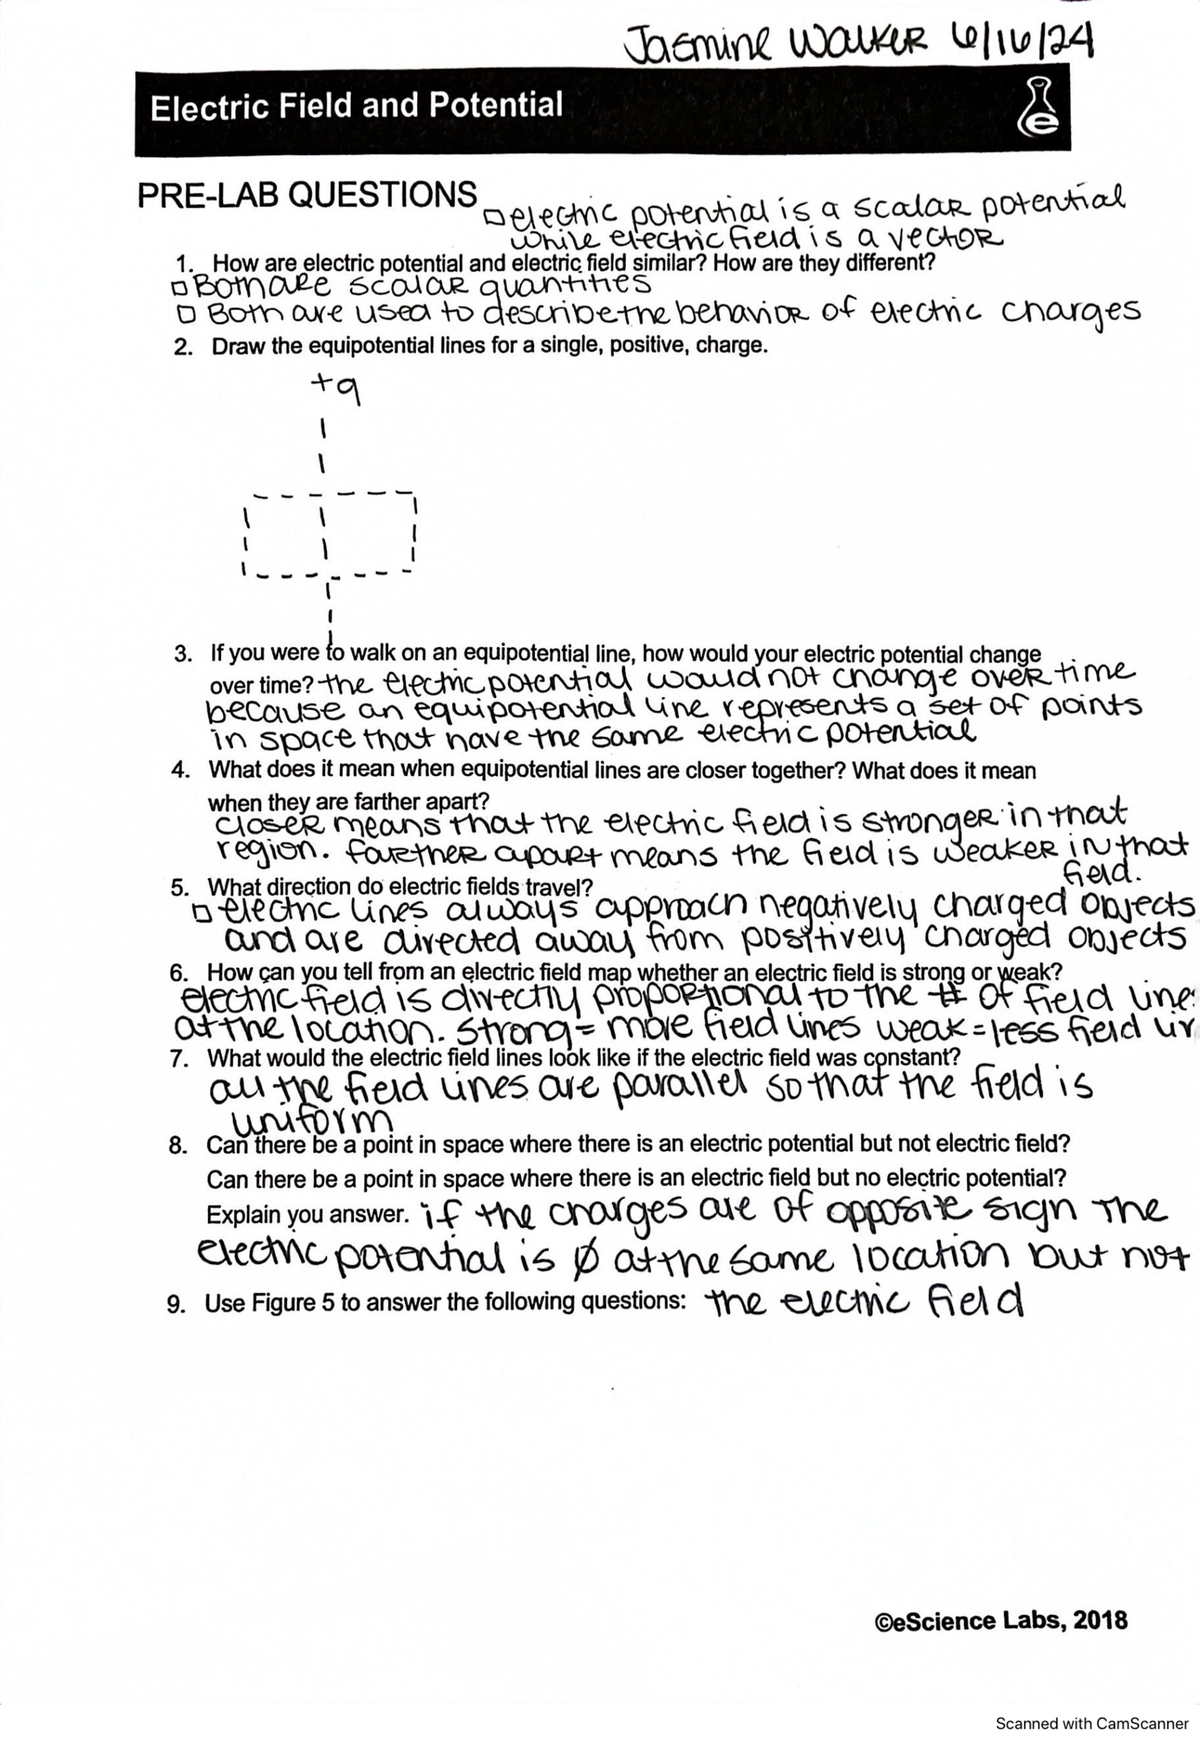 Jasmine Walker 6/16/24
Electric Field and Potential
e
PRE-LAB QUESTIONS
electric potential is a scalar potential
while electric field is a vector
1. How are electric potential and electric field similar? How are they different?
Both are scalar quantities
Both are used to describe the behavior of electric charges
2. Draw the equipotential lines for a single, positive, charge.
+q
3. If you were to walk on an equipotential line, how would your electric potential change
over time? the electric potential would not change over time
because an equipotential line represents a set of points
in space that have the same electric potential
4. What does it mean when equipotential lines are closer together? What does it mean
when they are farther apart?
closer means that the electric field is stronger in that
region. farther apart means the field is weaker in that
field.
5. What direction do electric fields travel?
electric lines always approach negatively charged objects
and are directed away from positively charged objects
6. How can you tell from an electric field map whether an electric field is strong or weak?
electric field is directly proportional to the # of field lines
at the location. strong = more field lines weak = less field lin
7. What would the electric field lines look like if the electric field was constant?
all the field lines are parallel so that the field is
uniform
8. Can there be a point in space where there is an electric potential but not electric field?
Can there be a point in space where there is an electric field but no electric potential?
Explain you answer. if the charges are of opposite sign The
electric potential is Ø at the same location but not
9. Use Figure 5 to answer the following questions: the electric field
©eScience Labs, 2018
Scanned with CamScanner